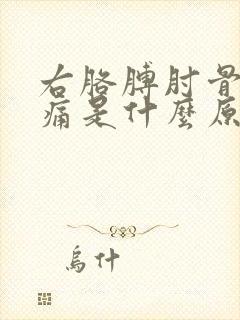 右胳膊肘骨
痛是什麼原
烏什